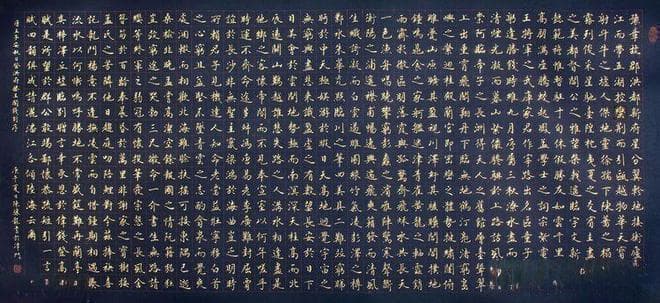 豫章故郡洪都新府星分翼軫地接衡廬襟三
江而帶五湖控蠻荊而引甌越物華天寶龍光
射牛斗之墟人傑地靈徐孺下陳蕃之榻雄州
霧列俊采星馳臺隍枕夷夏之交賓主盡東南
之美都督閻公之雅望棨戟遙臨宇文新州之
懿範襜帷暫駐十旬休暇勝友如雲千里逢迎
高朋滿座騰蛟起鳳孟學士之詞宗紫電清霜
王將軍之武庫家君作宰路出名區童子何知
躬逢勝餞時維九月序屬三秋潦水盡而寒潭
清煙光凝而暮山紫儼驂騑於上路訪風景於
崇阿臨帝子之長洲得天人之舊館層臺聳翠
上出重霄飛閣翔丹下臨無地鶴汀鳧渚窮島
嶼之縈迴桂殿蘭宮即岡巒之體勢披繡闥俯
雕甍山原曠其盈視川澤紆其駭矚閭閻撲地
鐘鳴鼎食之家舸艦迷津青雀黃龍之軸雲銷
雨霽彩徹區明落霞與孤鶩齊飛秋水共長天
一色漁舟唱晚響窮彭蠡之濱雁陣驚寒聲斷
衡陽之浦遙襟甫暢逸興遄飛爽籟發而清風
生纖歌凝而白雲遏睢園綠竹氣凌彭澤之樽
鄴水朱華光照臨川之筆四美具二難并窮睇
眄於中天極娛遊於暇日天高地迥覺宇宙之
無窮興盡悲來識盈虛之有數望長安於日下
目吳會於雲間地勢極而南溟深天柱高而北
辰遠關山難越誰悲失路之人萍水相逢盡是
他鄉之客懷帝閽而不見奉宣室以何年嗟乎
時運不齊命途多舛馮唐易老李廣難封屈賈
誼於長沙非無聖主竄梁鴻於海曲豈乏明時
所賴君子見機達人知命老當益壯寧移白首
之心窮且益堅不墜青雲之志酌貪泉而覺爽
處涸轍以猶歡北海雖賒扶搖可接東隅已逝
桑榆非晚孟嘗高潔空餘報國之情阮籍猖狂
豈效窮途之哭勃三尺微命一介書生無路請
纓等終軍之弱冠有懷投筆慕宗愨之長風捨
簪笏於百齡奉晨昏於萬里非謝家之寶樹接
孟氏之芳鄰他日趨庭叨陪鯉對今茲捧袂喜
托龍門楊意不逢撫凌雲而自惜鍾期既遇奏
流水以何慚嗚呼勝地不常盛筵難再蘭亭已
矣梓澤丘墟臨別贈言幸承恩於偉餞登高作
賦是所望於群公敢竭鄙懷恭疏短引一言均
賦四韻俱成請灑潘江各傾陸海云爾